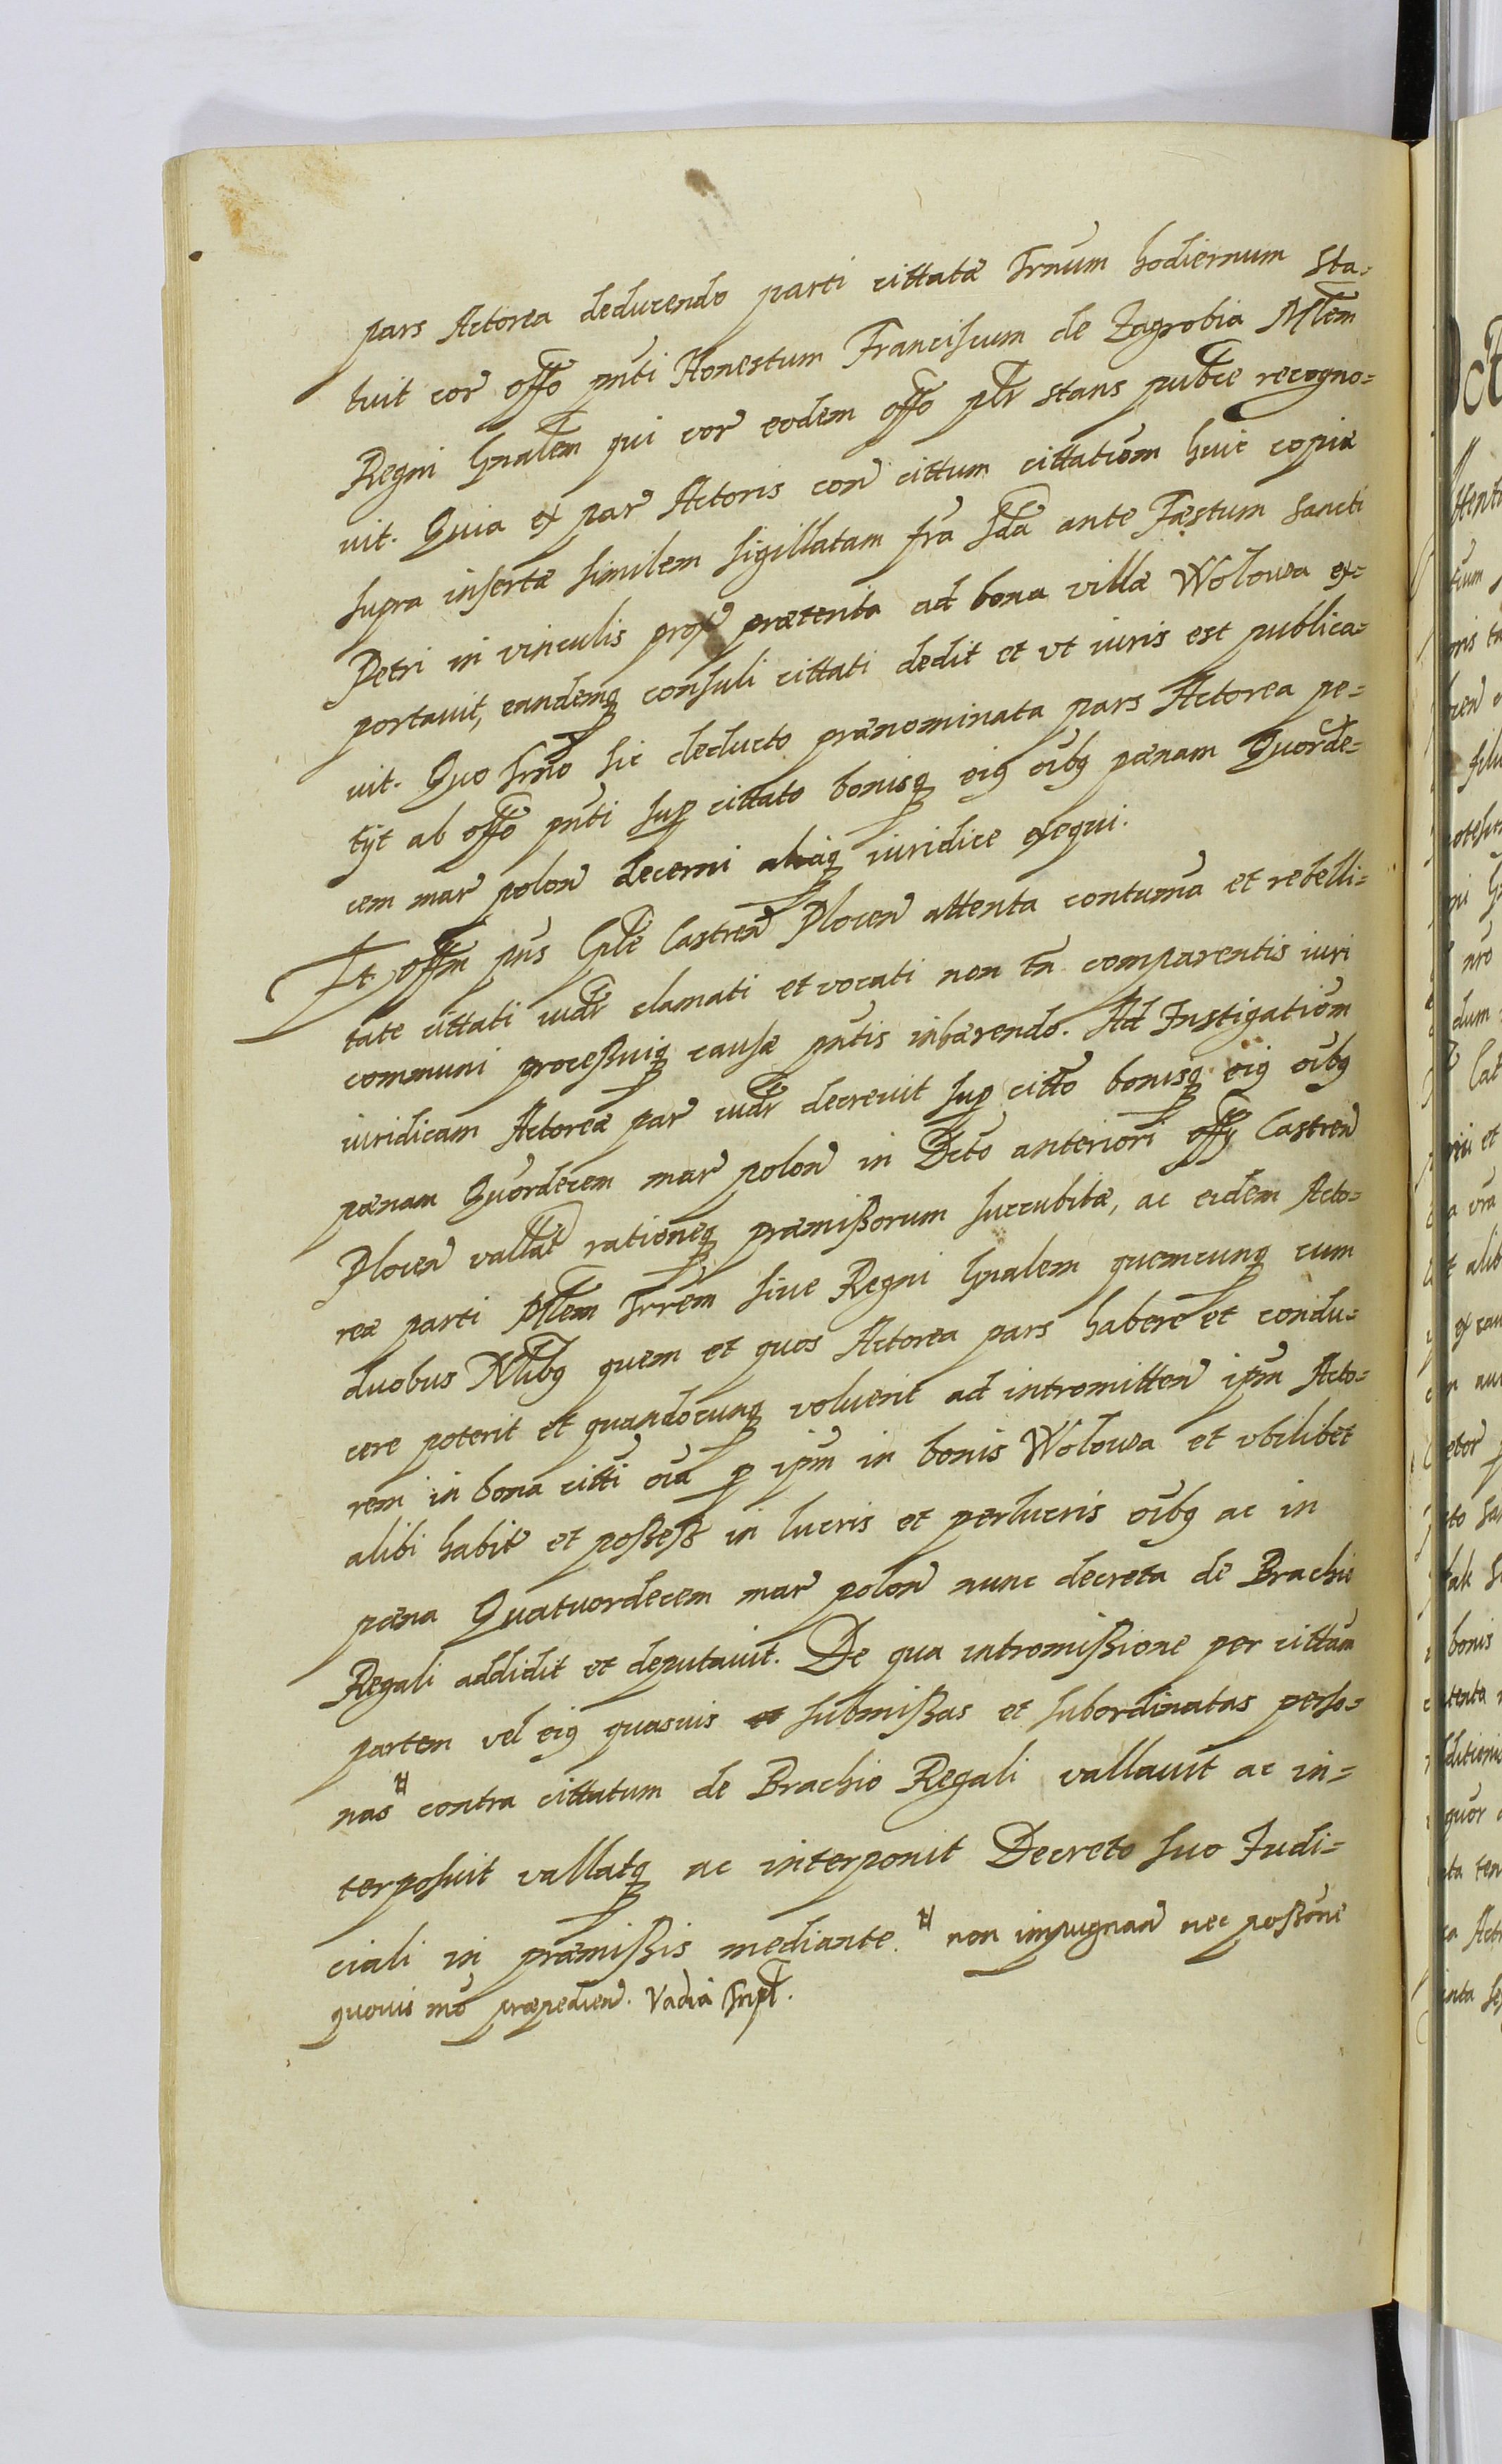 pars Actorea deducendo parti cittatæ Trnum hodiernum sta=
tuit cor offo pnti Honestum Franciscum de Zagrobia Mlem
Regni Gnalem qui cor eodem offo plr stans publce recogno=
uit. Quia ex par Actoris con cittum cittatiom huic copiæ
supra insertæ similem sigillatam fra 2da ante Fæstum Sancti
Petri in vinculis prox prætenta ad bona villæ Wolowa ex=
portauit, eandemq consuli cittati dedit et vt iuris est publica=
uit. Quo Trno sic deducto prænominata pars Actorea pe=
tijt ab offo pnti sup cittato bonisq eiq oibq pænam Quorde=
cem mar polon decerni aliaq iuridice exequi.
Et offm pns Gple Castren Plocen attenta contuma et rebelli=
tate cittati iudlr clamati et vocati non tn comparentis iuri
communi processuiq causæ pntis inhærendo. Ad Instigatiom
iuridicam Actoreæ par iudlr decreuit sup citto bonisq eiq oibq
pænam Quordecem mar polon in Dcto anteriori offy Castren
Plocen vallat rationeq præmissorum succubitæ, ac eidem Acto=
reæ parti Mlem Trrem siue Regni Gnalem quemcunq cum
duobus Nlibq quem et quos Actorea pars habere et condu=
cere poterit et quandocunq voluerit ad intromitten ipm Acto=
rem in bona citti oia p ipm in bonis Wolowa et vbilibet
alibi habit et possess in lucris et perlucris oibq ac in
pæna Quatuordecem mar polon nunc decreta de Brachio
Regali addidit et deputauit. De qua intromissione per cittam
partem vel eiq quasuis et submissas et subordinatas perso=
nas # contra cittatum de Brachio Regali vallauit ac in=
terposuit vallatq ac interponit Decreto suo Iudi=
ciali in præmissis mediante. # non impugnan nec possone
quouis mo præpedien. Vadia Tripl.